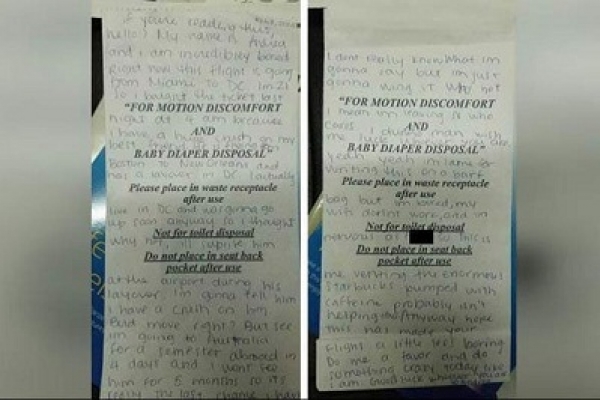 If you're reading this,
hello! My name is Andrea
and i am incredibly bored
Right now this flight is going
from Miami to DC. Im 21
So i bought the ticket last
"FOR MOTION DISCOMFORT
night at 4 am because
AND
i have a huge crush on my
BABY DIAPER DISPOSAL"
best friend
Boston to New Orleans and
has a layover in DC. I actually
Please place in waste receptacle
after use
live in DC and was gonna go
up soon anyway so i thought
Not for toilet disposal
why not, ill suprise him
Do not place in seat back
pocket after use
at the airport during his
layover. Im gonna tell him
I have a crush on him
Bold move right? But see
im going to Australia
for a semester abroad in
4 days and I wont see
him for 5 months so its
really the last
I dont really know what im
gonna say but im just
gonna wing it. Why not
"FOR MOTION DISCOMFORT
I mean im leaving so who
cares.
AND
me luck
BABY DIAPER DISPOSAL"
yeah yeah im lame for
writing this on a barf
Please place in waste receptacle
after use
bag but im bored, my
wifi doesnt work, and im
Not for toilet disposal
nervous as so this is
Do not place in seat back
pocket after use
me venting. the enormous
Starbucks pumped with
caffeine probably isn't
helping. Anyway hope
this has made your
flight a little less boring
Do me a favor and do
something crazy today like
i am. Good luck whoever you are